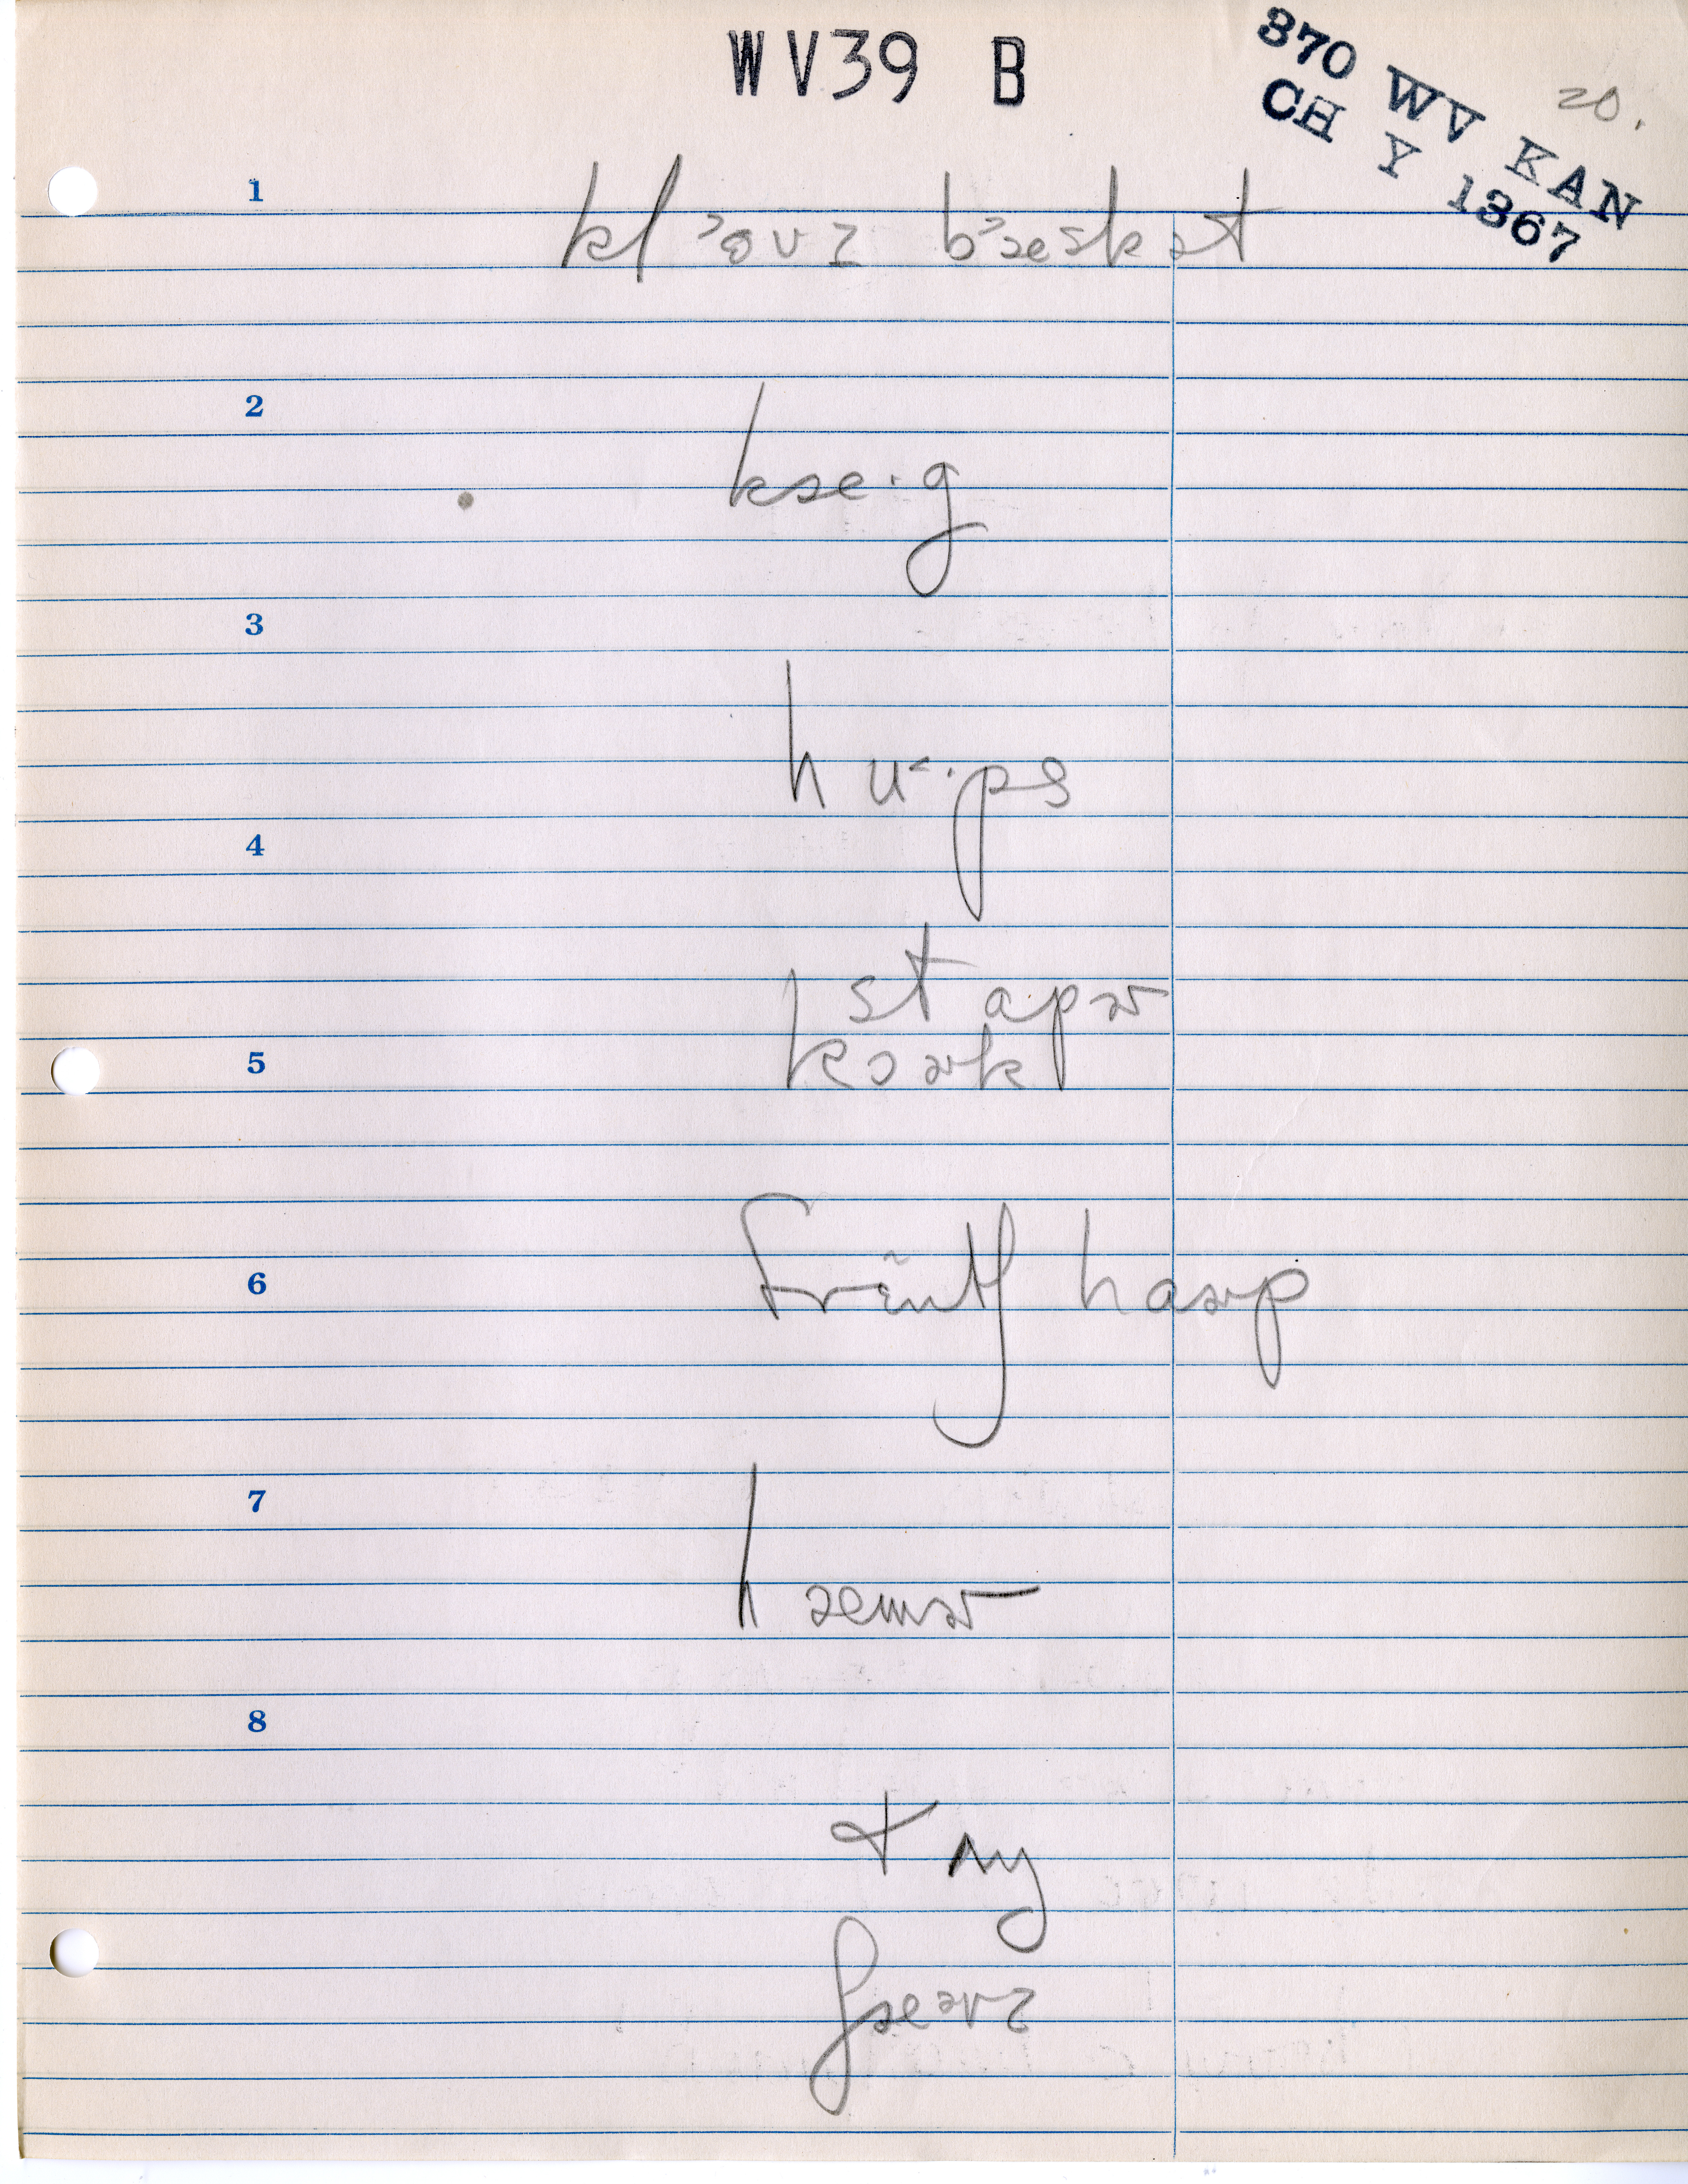 WV39 B
370 WV KAN
CH Y 1367
20.
1
kl˃ovz b˃æskət
2
kæ·g
3
hu˂·ps
4
stɑpɚ
kɔɚk
5
6
frɛ̃ntʃ hɑɚp
7
hæmɚ
8
tʌŋ
ʃæəvz